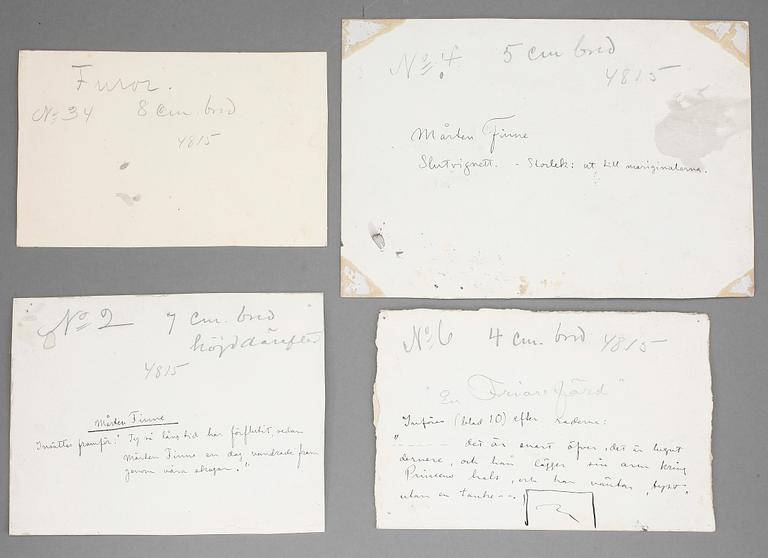 Furor.
No 34 8 cm. bred
4815
No 4. 5 cm bred
4815
Mårten Finne
Slutvignett. - Storlek: ut till marginalerna.
No 2 7 cm. bred
höjd därefter
4815
Mårten Finne
Insättes framför: "Ty så lång tid har förflutit, sedan
Mårten Finne en dag vandrade fram
genom våra skogar."
No 6 4 cm. bred 4815
"En Friarefärd"
Införes (blad 10) efter raderna:
"------ det är snart öfver, det är lugnt
dernere, och han lägger sin arm kring
Princens hals, och han väntar, tyst,
utan en tanke--.